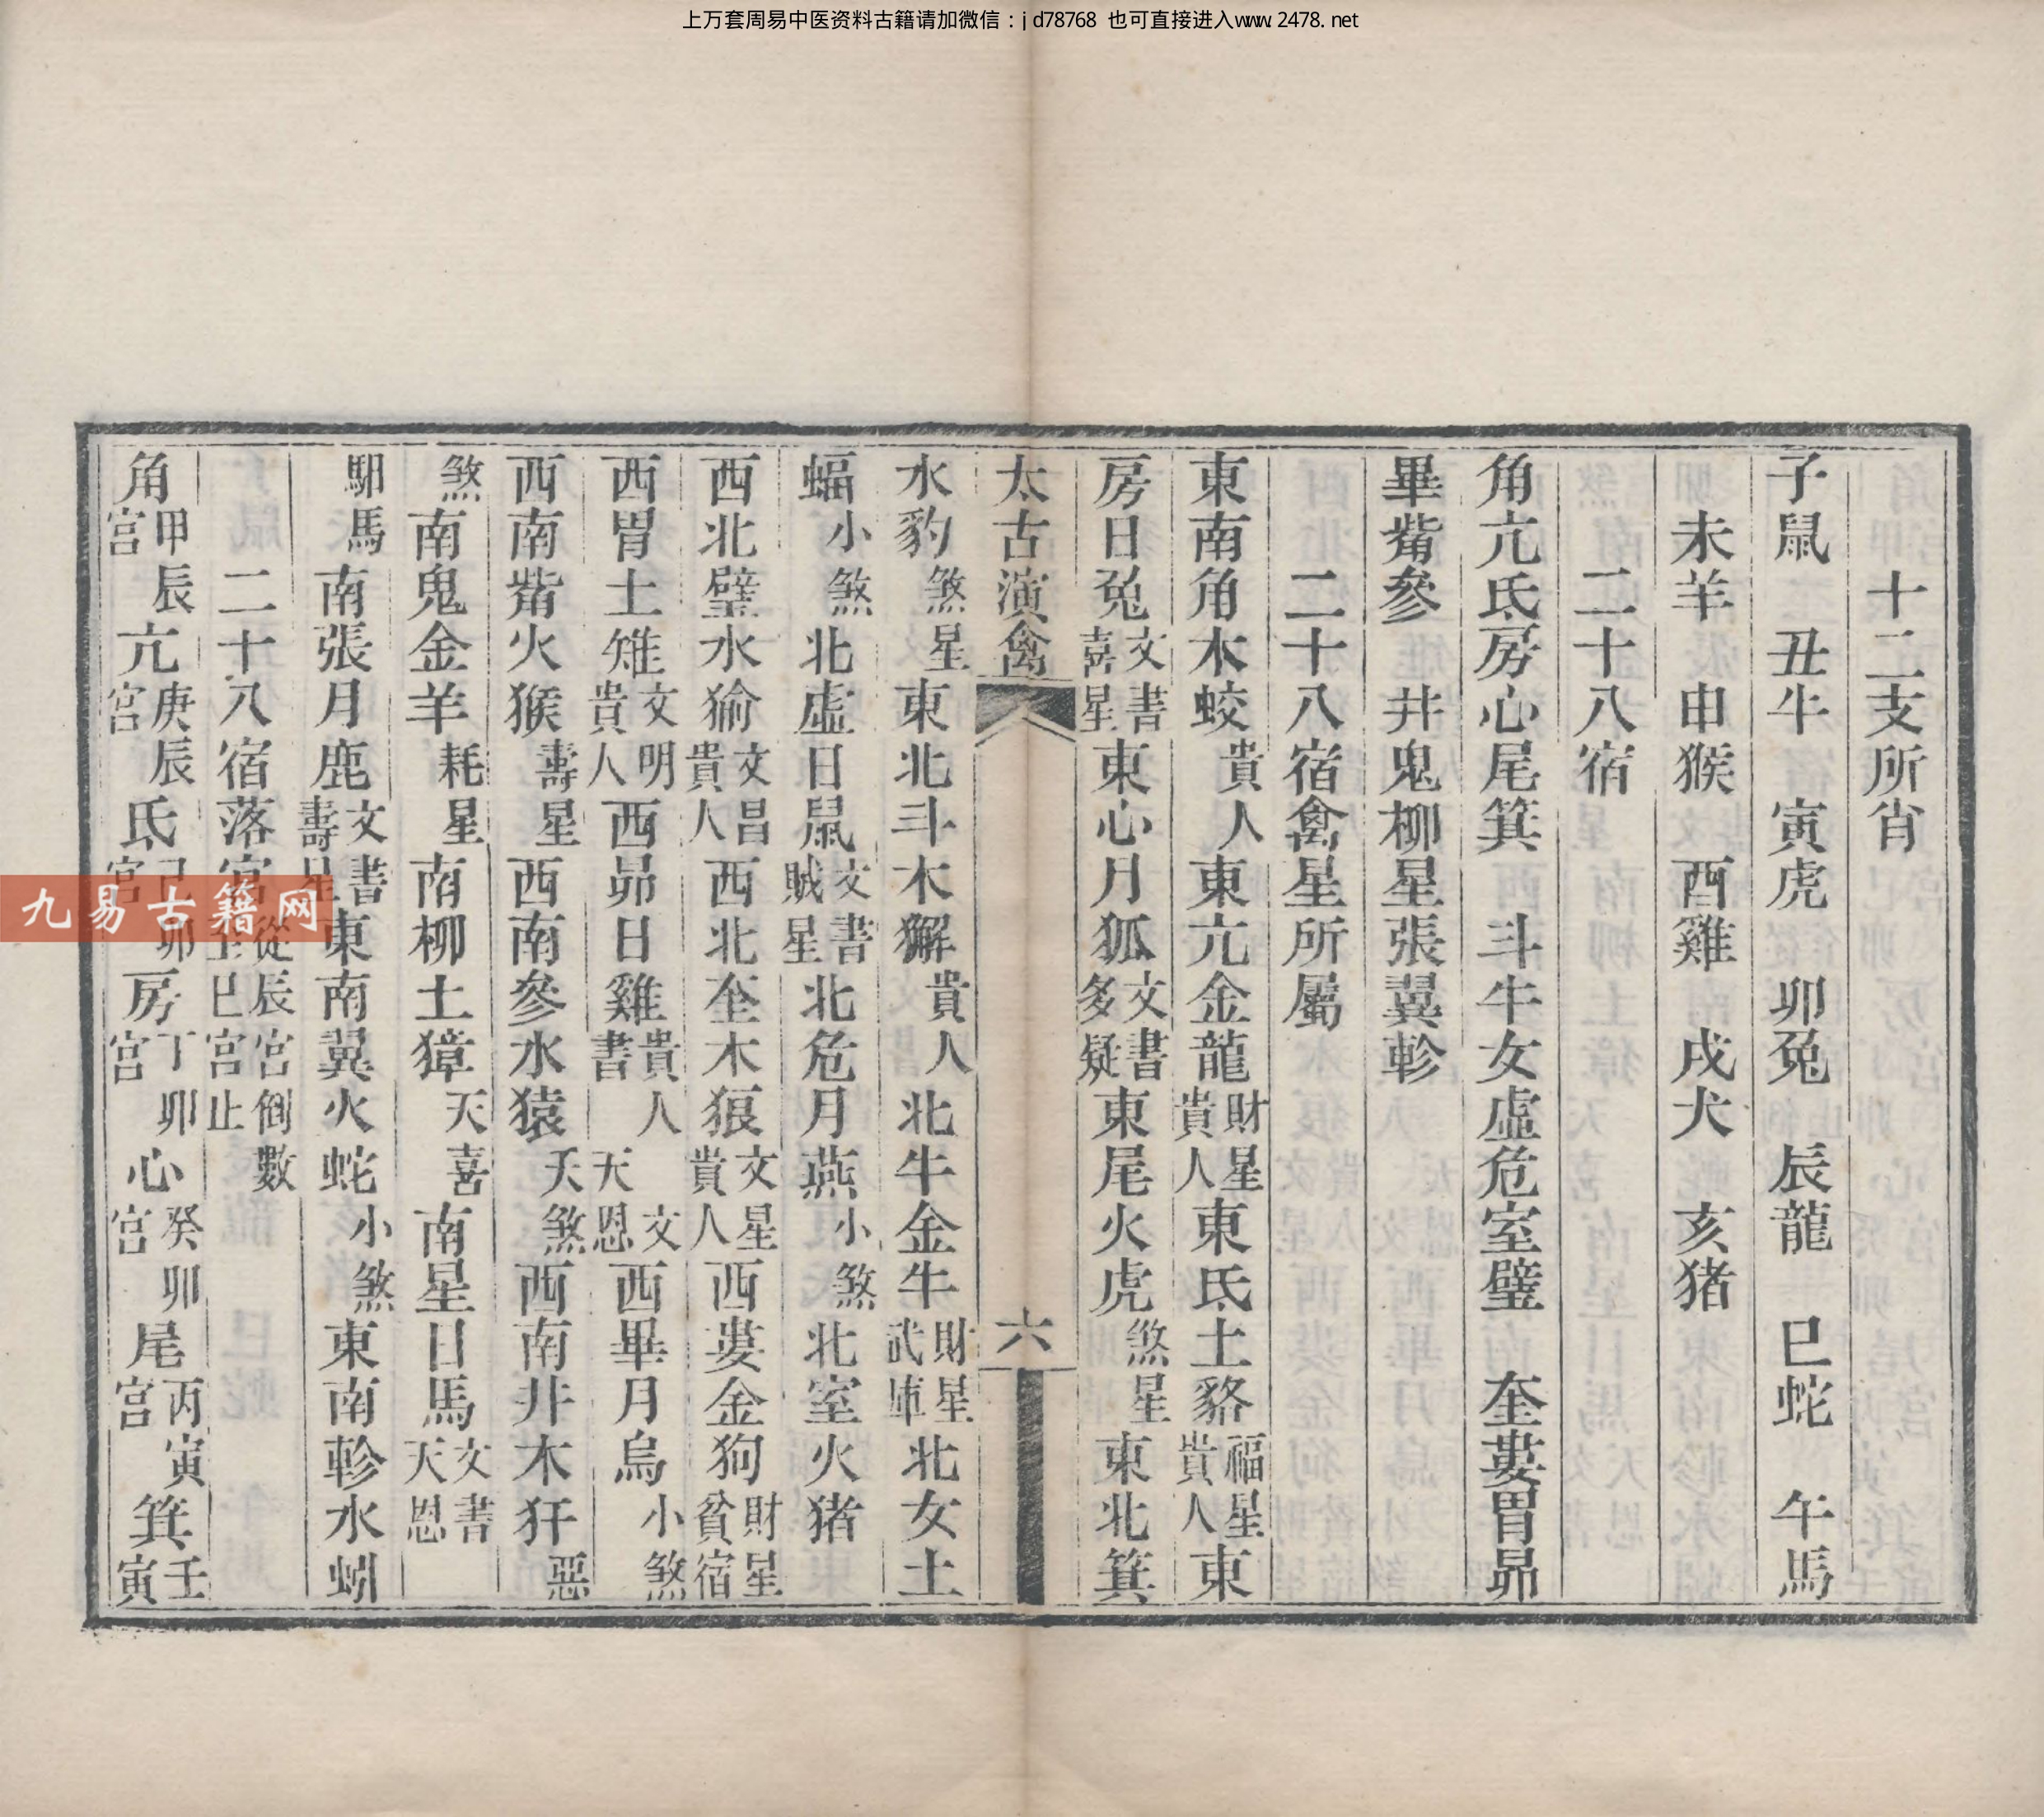 上万套周易中医资料古籍请加微信：jd78768 也可直接进入www.2478.net
十二支所肖
子鼠 丑牛 寅虎 卯兔 辰龍 巳蛇 午馬
未羊 申猴 酉雞 戌犬 亥猪
二十八宿
角亢氐房心尾箕 斗牛女虛危室壁 奎婁胃昴
畢觜參 井鬼柳星張翼軫
二十八宿禽星所屬
東南角木蛟貴人 東亢金龍財星貴人 東氐土貉福星貴人 東
房日兔文書喜星 東心月狐文書多疑 東尾火虎煞星 東北箕
太古演禽 六
水豹煞星 東北斗木獬貴人 北牛金牛財星武庫 北女土
蝠小煞 北虛日鼠文書賊星 北危月燕小煞 北室火猪
西北壁水㺄文昌貴人 西北奎木狼文星貴人 西婁金狗財星貧宿
西胃土雉文明貴人 西昴日雞貴人書 天恩文 西畢月烏小煞
西南觜火猴壽星 西南參水猿天煞 西南井木犴惡
煞 南鬼金羊耗星 南柳土獐天喜 南星日馬文書天恩
馹馬 南張月鹿文書壽星 東南翼火蛇小煞 東南軫水蚓
二十八宿落宮從辰宮倒數至巳宮止
角甲辰宮 亢庚辰宮 氐己卯宮 房丁卯宮 心癸卯宮 尾丙寅宮 箕壬寅
九易古籍网